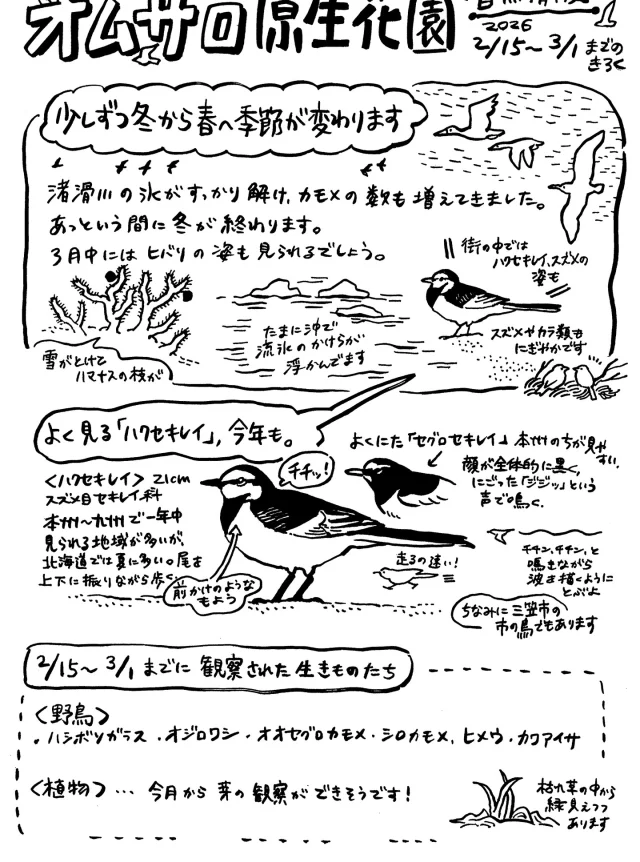 オムサロ原生花園
2026
2/15～3/1までの
きろく
少しずつ冬から春へ季節が変わります
渚滑川の氷がすっかり解け、カモメの数も増えてきました。
あっという間に冬が終わります。
3月中にはヒバリの姿も見られるでしょう。
街の中では
ハクセキレイ、スズメの
姿も
スズメやカラ類も
にぎやかです
たまに沖で
流氷のかけらが
浮かんでます
雪がとけて
ハマナスの枝が
よく見る「ハクセキレイ」、今年も。
チチッ!
よくにた「セグロセキレイ」本州のちが見やすい。
顔が全体的に黒く、
にごった「ジジッ」という
声で鳴く。
<ハクセキレイ> 21cm
スズメ目セキレイ科
本州～九州で一年中
見られる地域が多いが、
北海道では夏に多い。尾を
上下に振りながら歩く
前かけのような
もよう
走るの速い!
チチン、チチン、と
鳴きながら
波を描くように
とぶよ
ちなみに三笠市の
市の鳥でもあります
2/15～3/1までに観察された生きものたち
<野鳥>
・ハシボソガラス・オジロワシ・オオセグロカモメ・シロカモメ、ヒメウ・カワアイサ
<植物>…今月から芽の観察ができそうです!
枯れ草の中から
緑見えつつ
あります